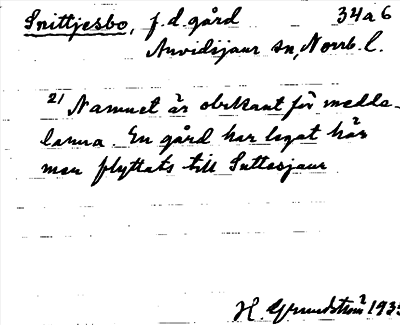 Snittjesbo, f.d. gård 34a6
Arvidsjaur sn, Norrb. l.
2/ Namnet är obekant för medde-
larna. En gård har legat här
men flyttats till Suttesjaur
H. Grundström 1935